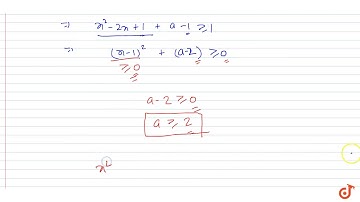 ⇒ x² - 2x + 1 + a - 1 ≥ 1
⇒ (x-1)² + (a-2) ≥ 0
≥ 0
a - 2 ≥ 0
a ≥ 2
x²